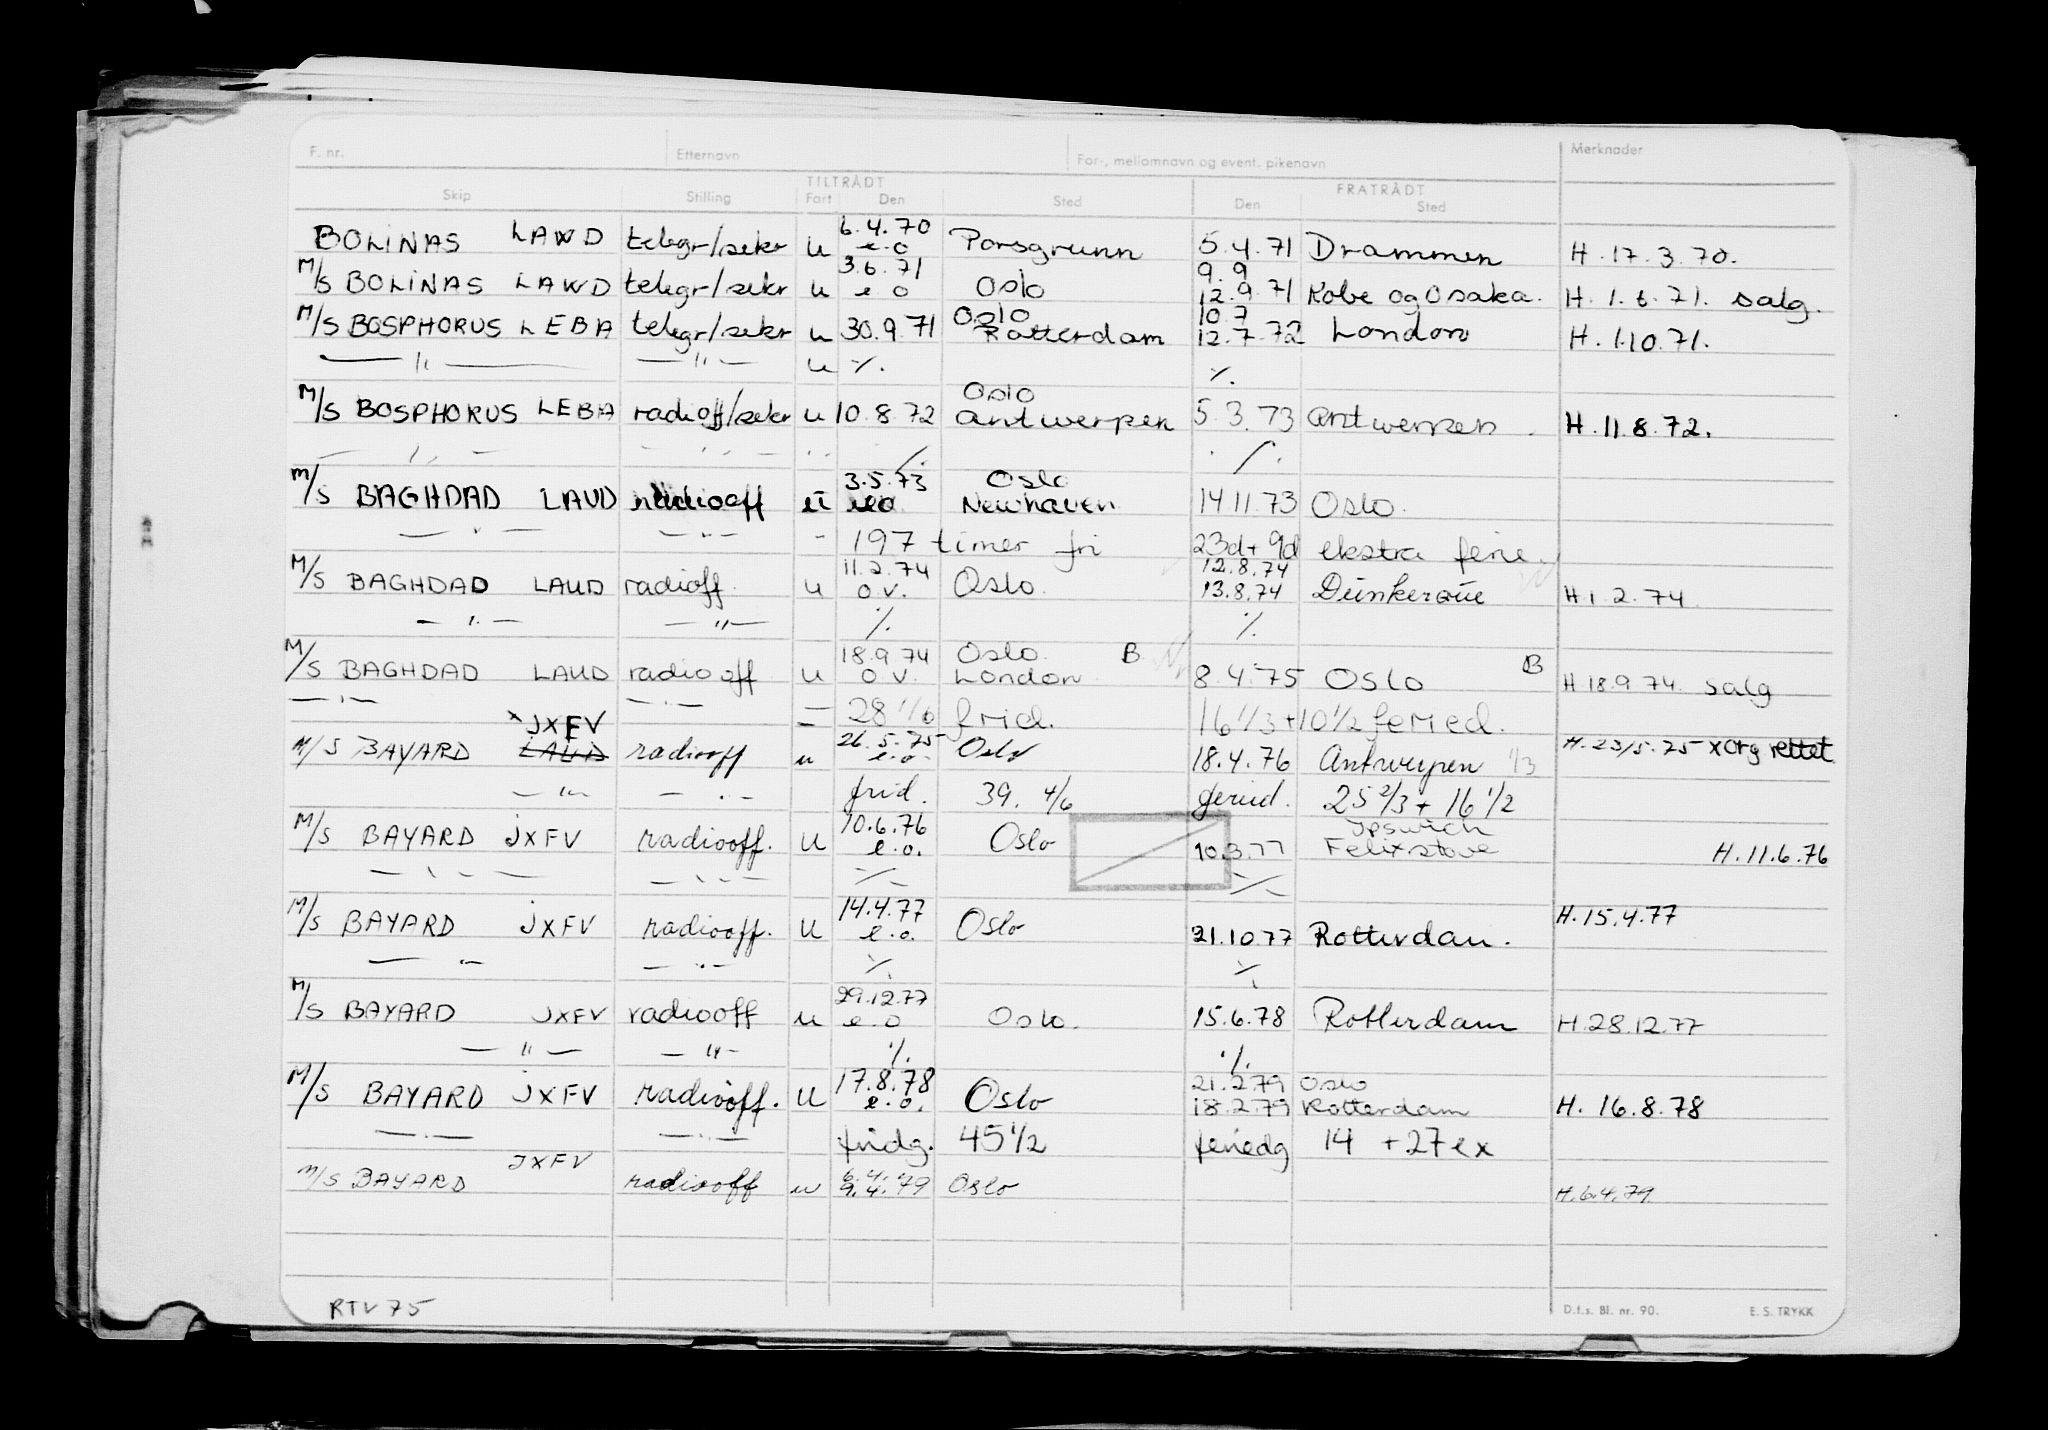 F. nr. Etternavn For-, mellomnavn og event. pikenavn Merknader
TILTRÅDT FRATRÅDT
Skip Stilling Fart Den Sted Den Sted
6.4.70
BOLINAS LAWD telegr/sekr u e.o Porsgrunn 5.4.71 Drammen H.17.3.70.
3.6.71 9.9
M/S BOLINAS LAWD telegr/sekr u e o Oslo 12.9.71 Kobe og Osaka. H.1.6.71. salg.
Oslo 10.7
M/S BOSPHORUS LEBA telegr/sekr u 30.9.71 Rotterdam 12.7.72 London H.1.10.71.
— " — — " — u %. %.
Oslo
M/S BOSPHORUS LEBA radioff/sekr u 10.8.72 Antwerpen 5.3.73 Antwerpen. H.11.8.72.
— " — %. %.
3.5.73 Oslo
M/S BAGHDAD LAUD radiooff u Newhaven 14 11.73 Oslo.
— " — — " — 197 timer fri 23d+ 9d ekstra ferie.
11.2.74 12.8.74
M/S BAGHDAD LAUD radioff. u o.v. Oslo. 13.8.74 Dünkerque H.1.2.74
— " — — " — %. %.
18.9.74 Oslo. B B
M/S BAGHDAD LAUD radiooff u o v. London 8.4.75 Oslo H 18.9.74. salg
— " — — " — 28 1/6 frid. 16 1/3 + 10 1/2 feried.
x JXFV 26.5.75
M/S BAYARD LAUD radiooff u e.o. Oslo 18.4.76 Antwerpen 1/3 H.23/5.75 x Org rettet
— " — — " — frid. 39. 4/6 feried. 25 2/3 + 16 1/2
10.6.76 Ipswich
M/S BAYARD JXFV radiooff. u e.o. Oslo 10.3.77 Felixstowe H.11.6.76
— " — — " — %. %.
14.4.77
M/S BAYARD JXFV radiooff. u e.o. Oslo 21.10.77 Rotterdam. H.15.4.77
— " — — " — %. %.
29.12.77
M/S BAYARD JXFV radiooff u e.o Oslo. 15.6.78 Rotterdam H.28.12.77
— " — — " — %. %.
17.8.78 21.2.79 Oslo
M/S BAYARD JXFV radiooff. u e.o. Oslo 18.2.79 Rotterdam H. 16.8.78
— " — — " — fridg. 45 1/2 feriedg 14 + 27 ex
JXFV 6.4.
M/S BAYARD radiooff u 9.4.79 Oslo H.6.4.79.
RTV 75 D.f.s. Bl. nr. 90. E. S. TRYKK